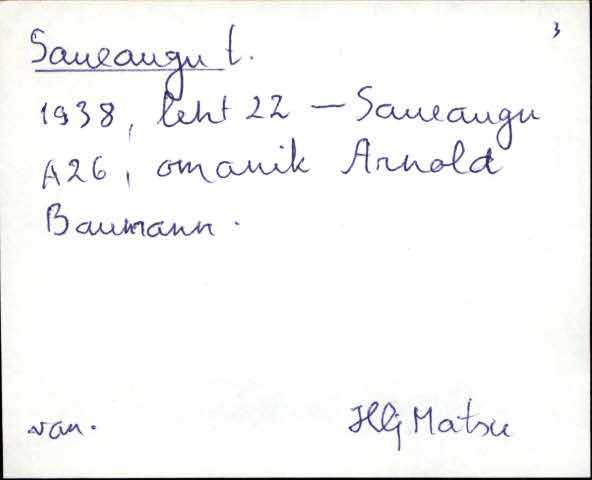 3
Saueaugu t.
1938, leht 22 – Saueaugu
A26, omanik Arnold
Baumann.
van. Hlj Matsu